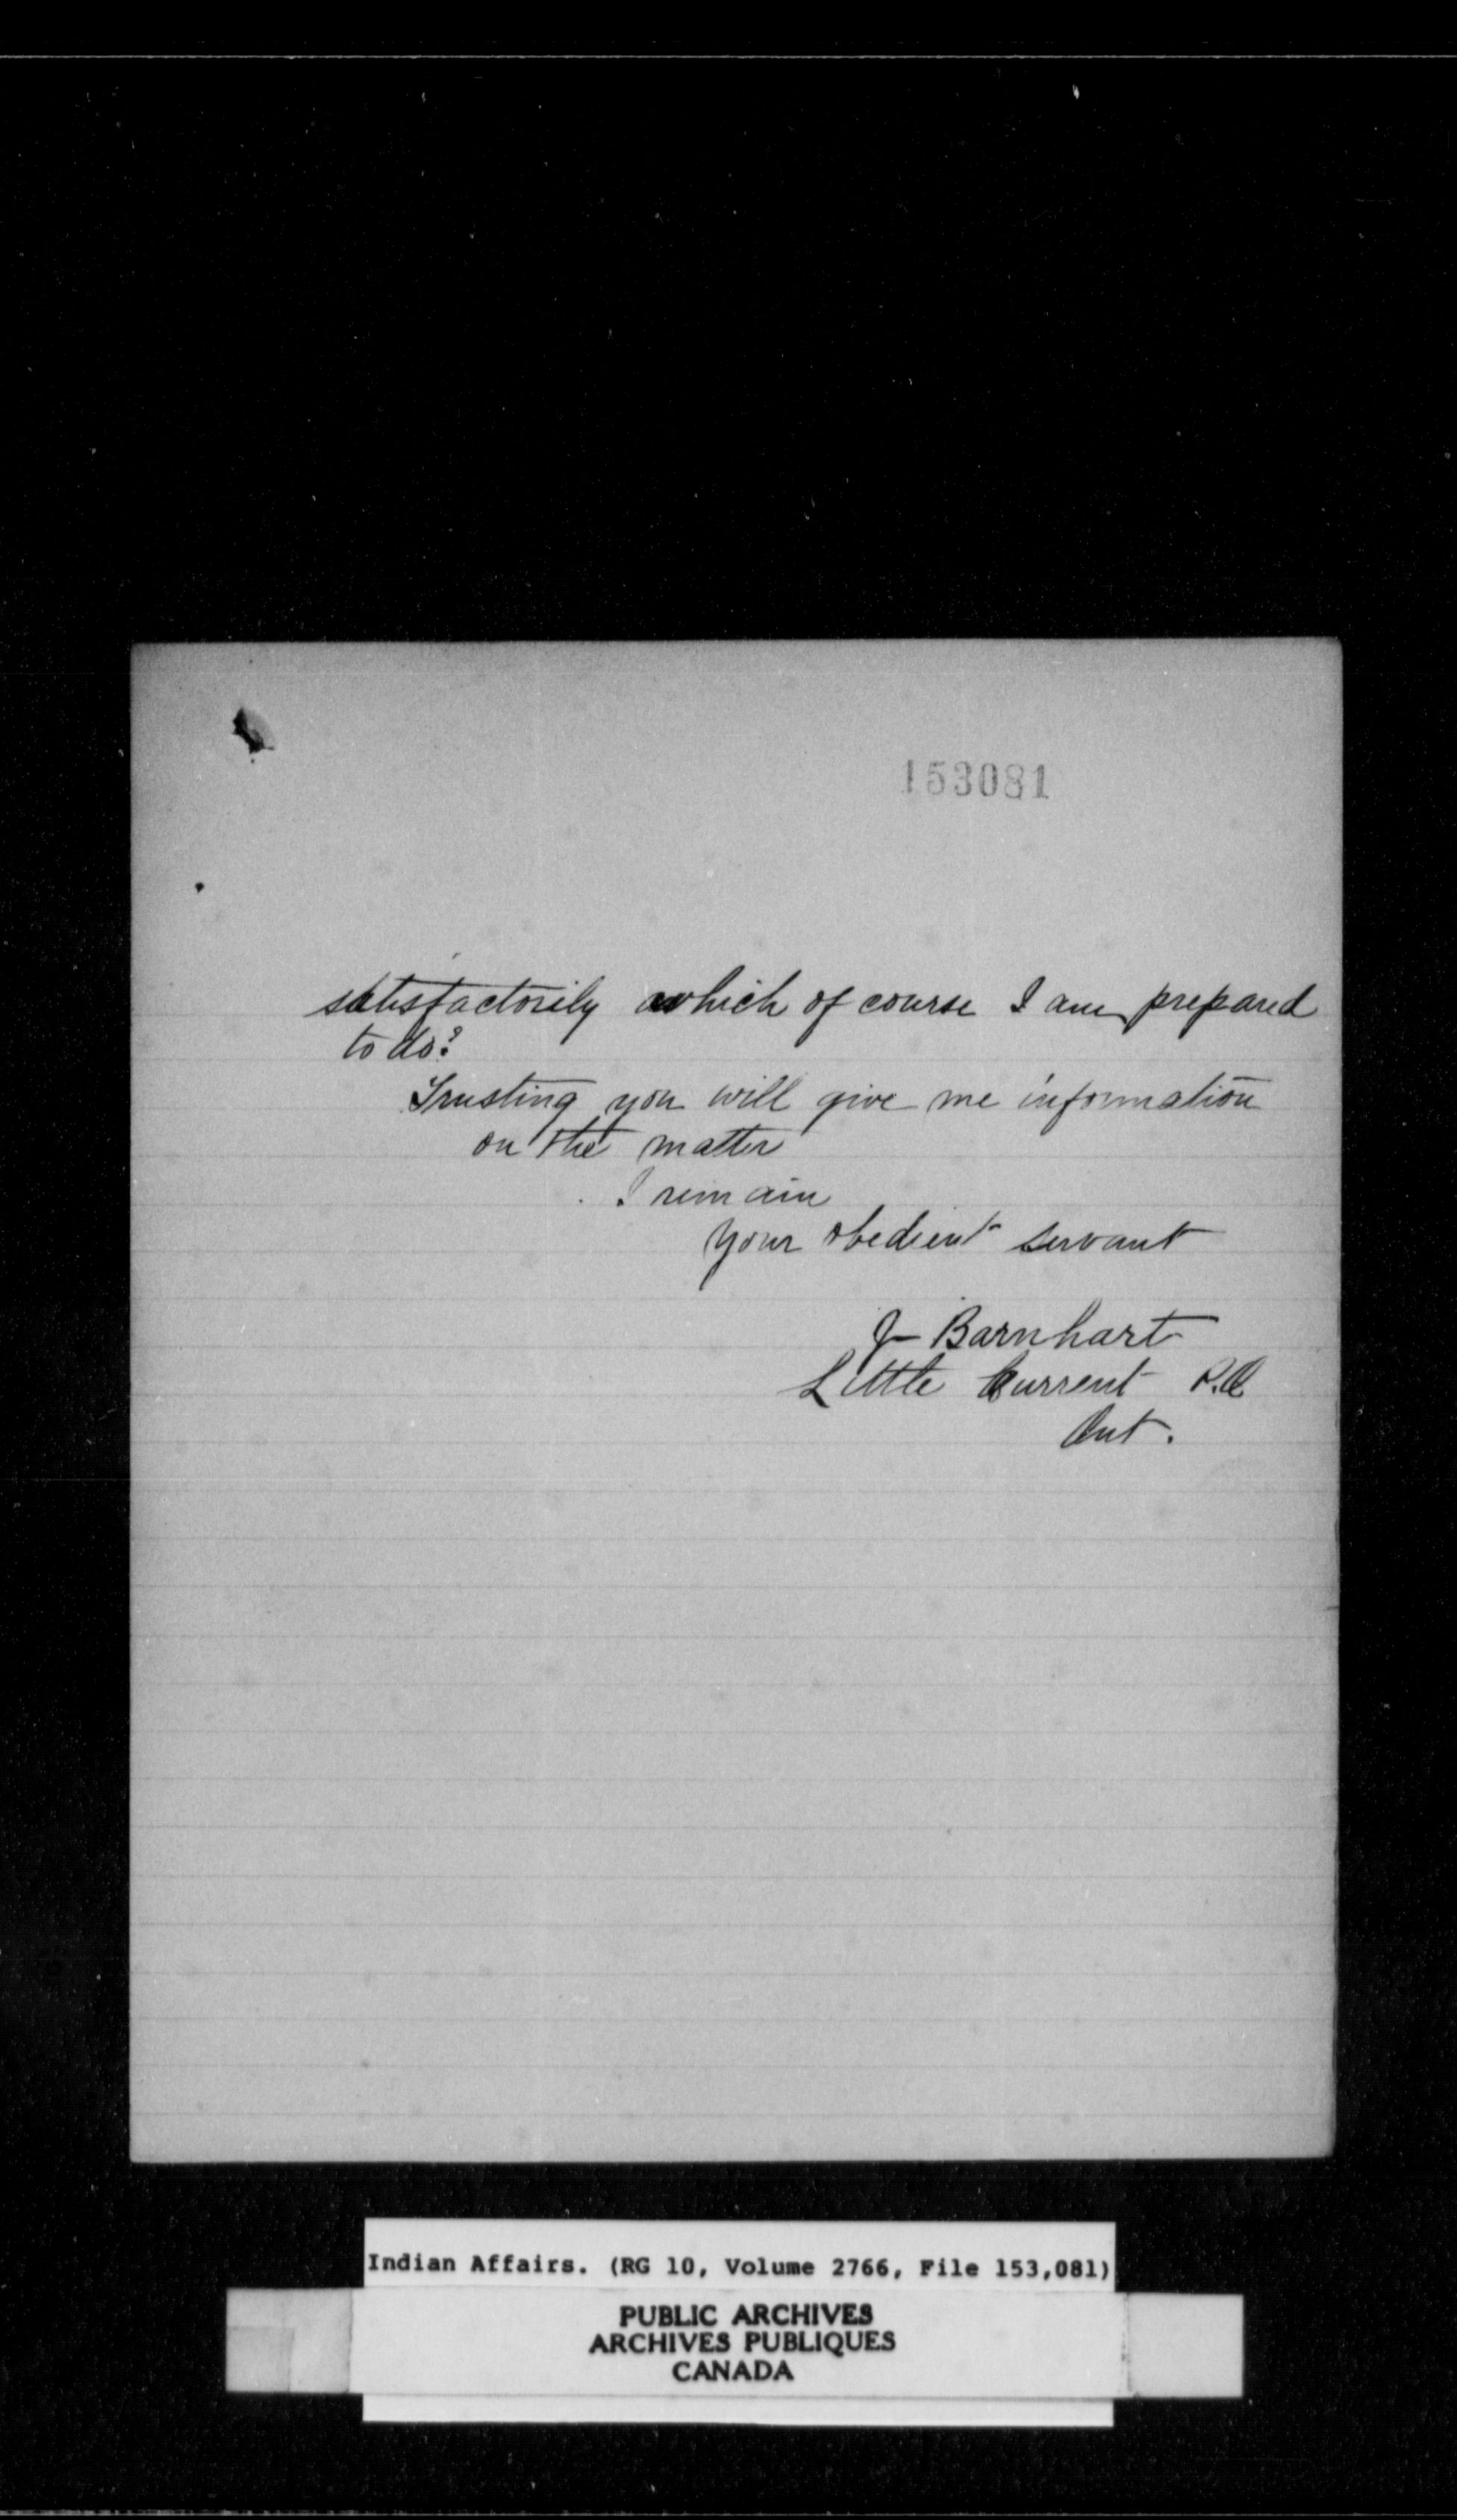 153081
satisfactorily which of course I am prepared
to do?
Trusting you will give me information
on the matter
I remain
Your obedient servant
J Barnhart
Little Current P.O
Ont.
Indian Affairs. (RG 10, Volume 2766, File 153,081)
PUBLIC ARCHIVES
ARCHIVES PUBLIQUES
CANADA